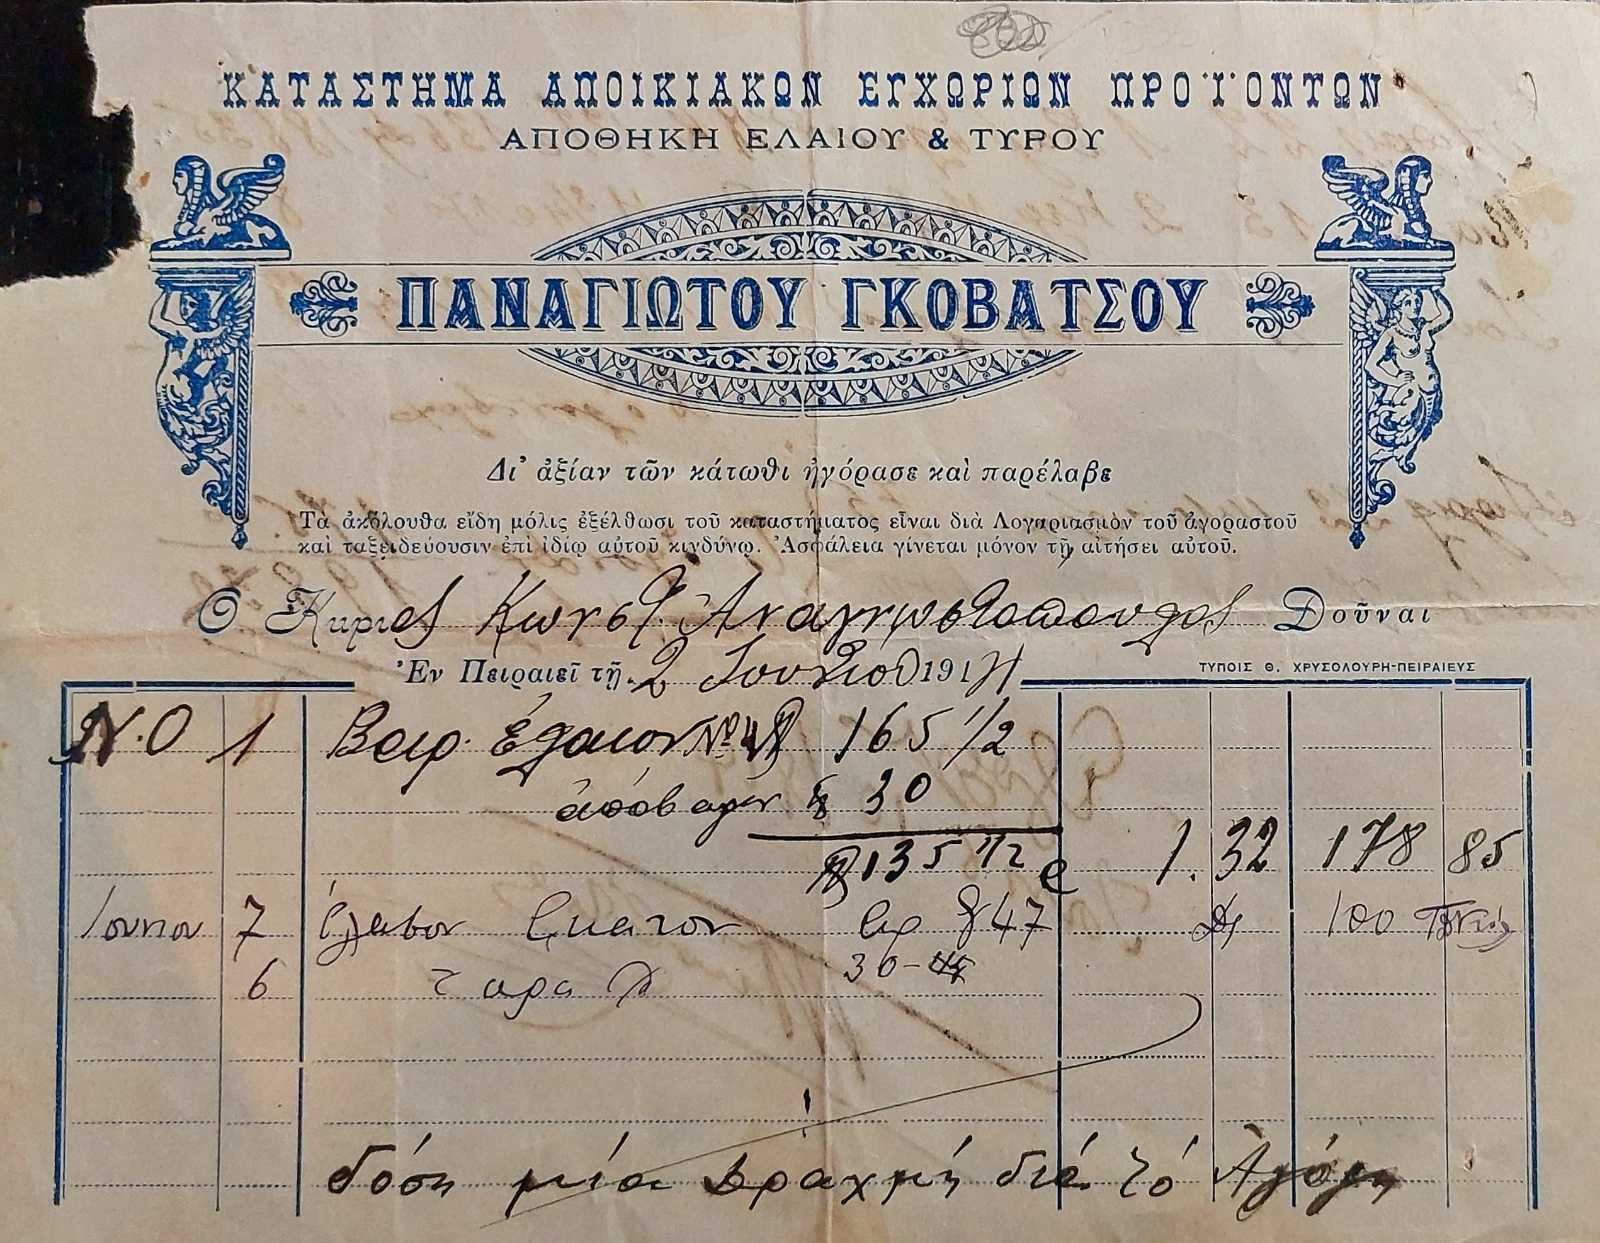 ΚΑΤΑΣΤΗΜΑ ΑΠΟΙΚΙΑΚΩΝ ΕΓΧΩΡΙΩΝ ΠΡΟΪΟΝΤΩΝ
ΑΠΟΘΗΚΗ ΕΛΑΙΟΥ & ΤΥΡΟΥ
ΠΑΝΑΓΙΩΤΟΥ ΓΚΟΒΑΤΣΟΥ
Δι' ἀξίαν τῶν κάτωθι ἠγόρασε καὶ παρέλαβε
Τὰ ἀκόλουθα εἴδη μόλις ἐξέλθωσι τοῦ καταστήματος εἶναι διὰ Λογαριασμὸν τοῦ ἀγοραστοῦ
καὶ ταξειδεύουσιν ἐπὶ ἰδίῳ αὐτοῦ κινδύνῳ. Ἀσφάλεια γίνεται μόνον τῇ αἰτήσει αὐτοῦ.
Ὁ Κύριος Κωνστ. Αναγνωστοπουλος Δοῦναι
Ἐν Πειραιεῖ τῇ 2 Ιουνίου 191
ΤΥΠΟΙΣ Θ. ΧΡΥΣΟΛΟΥΡΗ-ΠΕΙΡΑΙΕΥΣ
Ν.Ο 1 Βαρ. έλαιον 165 1/2
30
135 1/2 1.32 178 85
Ιουνιου 7 έλαβον 47 100
6 ταρα 30
δόση μία δραχμή διά τό